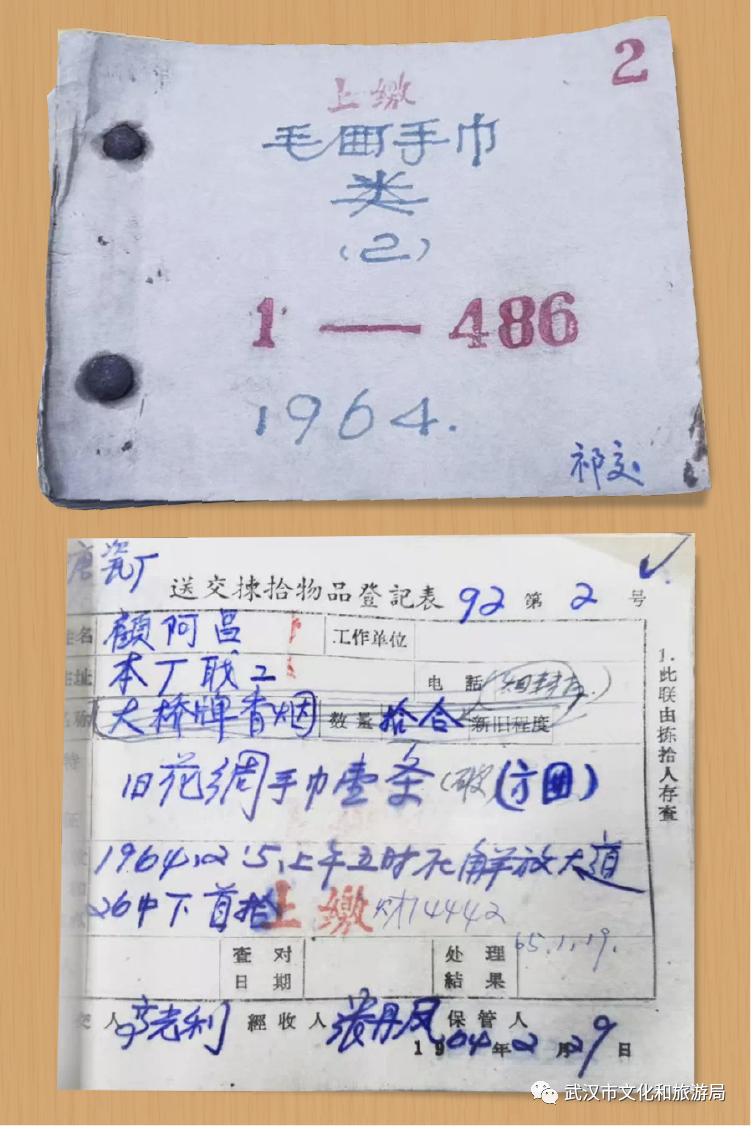 2
上缴
毛画手巾
类
(2)
1 — 486
1964.
祁交
唐瓷厂
送交揀拾物品登記表 92 第 2 号
姓名 顧阿昌 工作单位
住址 本厂职工 电話
名称 大桥牌香烟 数量 拾合 新旧程度
特 旧花绸手巾壹条(破)(方
征
1964.2.5.上午五时在解放大道
26中下首拾 上缴 财14442
查对日期 处理結果 65.1.19.
交人 經收人 张丹凤 保管人
1964年2月29日
1.此联由拣拾人存查
武汉市文化和旅游局